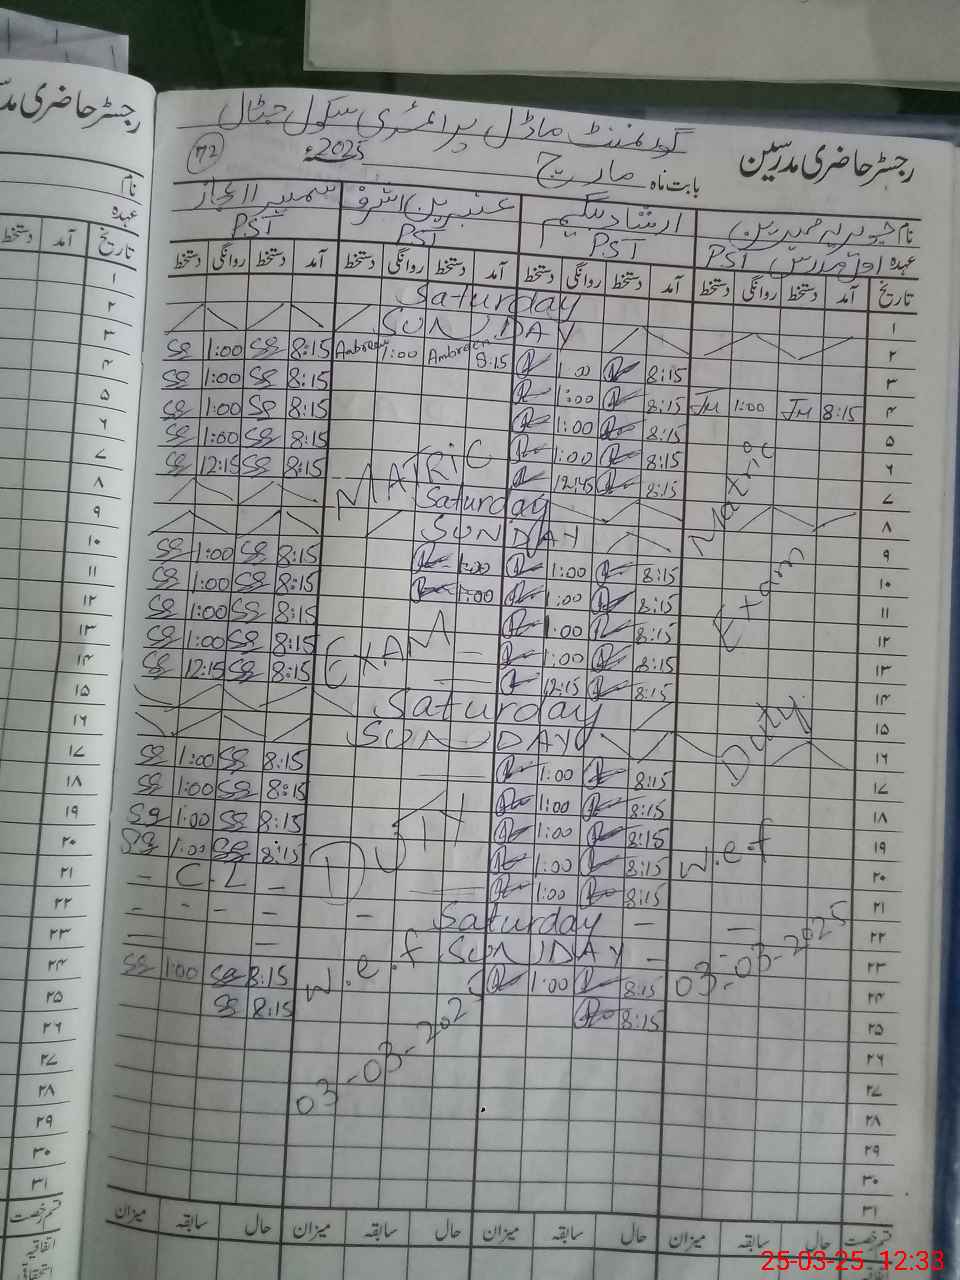 رجسٹر حاضری مدرسین
گورنمنٹ ماڈل پرائمری سکول جٹال
بابت ماہ مارچ 2025ء
72
نام
ارشاد بیگم
عنبرین اشرف
سمیرا اعجاز
عہدہ اول مدرس PST
PST
PST
PST
تاریخ آمد دستخط روانگی دستخط آمد دستخط روانگی دستخط آمد دستخط روانگی دستخط آمد دستخط روانگی دستخط
۱ Saturday
۲ SUNDAY
۳ 8:15 1:00 8:15 Ambreen 1:00 Ambreen 8:15 SG 1:00 SG
۴ 8:15 JM 1:00 JM 8:15 1:00 8:15 SG 1:00 SG
۵ 8:15 1:00 8:15 SG 1:00 SG
۶ 8:15 1:00 8:15 SG 1:00 SG
۷ 8:15 12:45 8:15 SG 12:15 SG
۸ Saturday
۹ SUNDAY
۱۰ 8:15 1:00 1:00 8:15 SG 1:00 SG
۱۱ 8:15 1:00 1:00 8:15 SG 1:00 SG
۱۲ 8:15 1:00 8:15 SG 1:00 SG
۱۳ 8:15 1:00 8:15 SG 1:00 SG
۱۴ 8:15 12:15 8:15 SG 12:15 SG
۱۵ Saturday
۱۶ SUNDAY
۱۷ 8:15 1:00 8:15 SG 1:00 SG
۱۸ 8:15 1:00 8:15 SG 1:00 SG
۱۹ 8:15 1:00 8:15 SG 1:00 SG
۲۰ 8:15 1:00 8:15 SG 1:00 SG
۲۱ 8:15 1:00 – C L –
۲۲ Saturday
۲۳ SUNDAY
۲۴ 8:15 1:00 8:15 SG 1:00 SG
۲۵ 8:15 8:15 SG
۲۶
۲۷
۲۸
۲۹
۳۰
۳۱
Matric
Exam
Duty
w.e.f
03-03-2025
MATRIC
EXAM
DUTY
w.e.f
03-03-2025
قسم رخصت حال سابقہ میزان حال سابقہ میزان حال سابقہ میزان حال سابقہ میزان
رجسٹر حاضری
نام
عہدہ
تاریخ آمد دستخط
۱
۲
۳
۴
۵
۶
۷
۸
۹
۱۰
۱۱
۱۲
۱۳
۱۴
۱۵
۱۶
۱۷
۱۸
۱۹
۲۰
۲۱
۲۲
۲۳
۲۴
۲۵
۲۶
۲۷
۲۸
۲۹
۳۰
۳۱
قسم رخصت
اتفاقیہ
استحقاقی
25-03-25 12:33